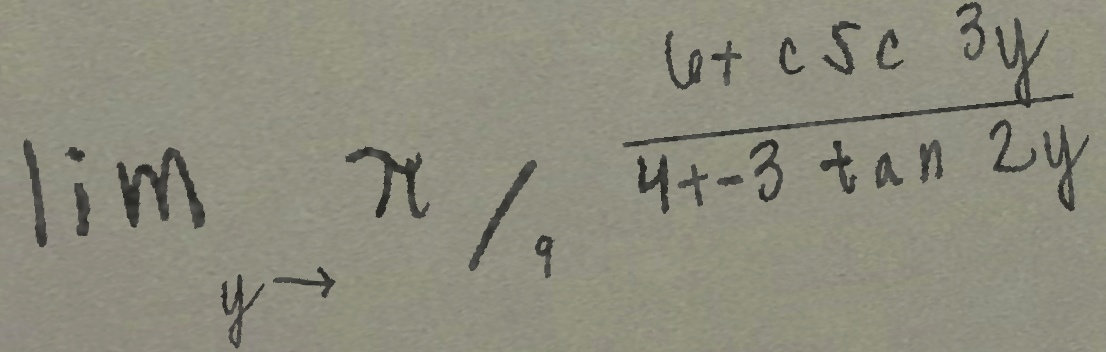 lim y→ π/9 6+ csc 3y / 4+-3 tan 2y